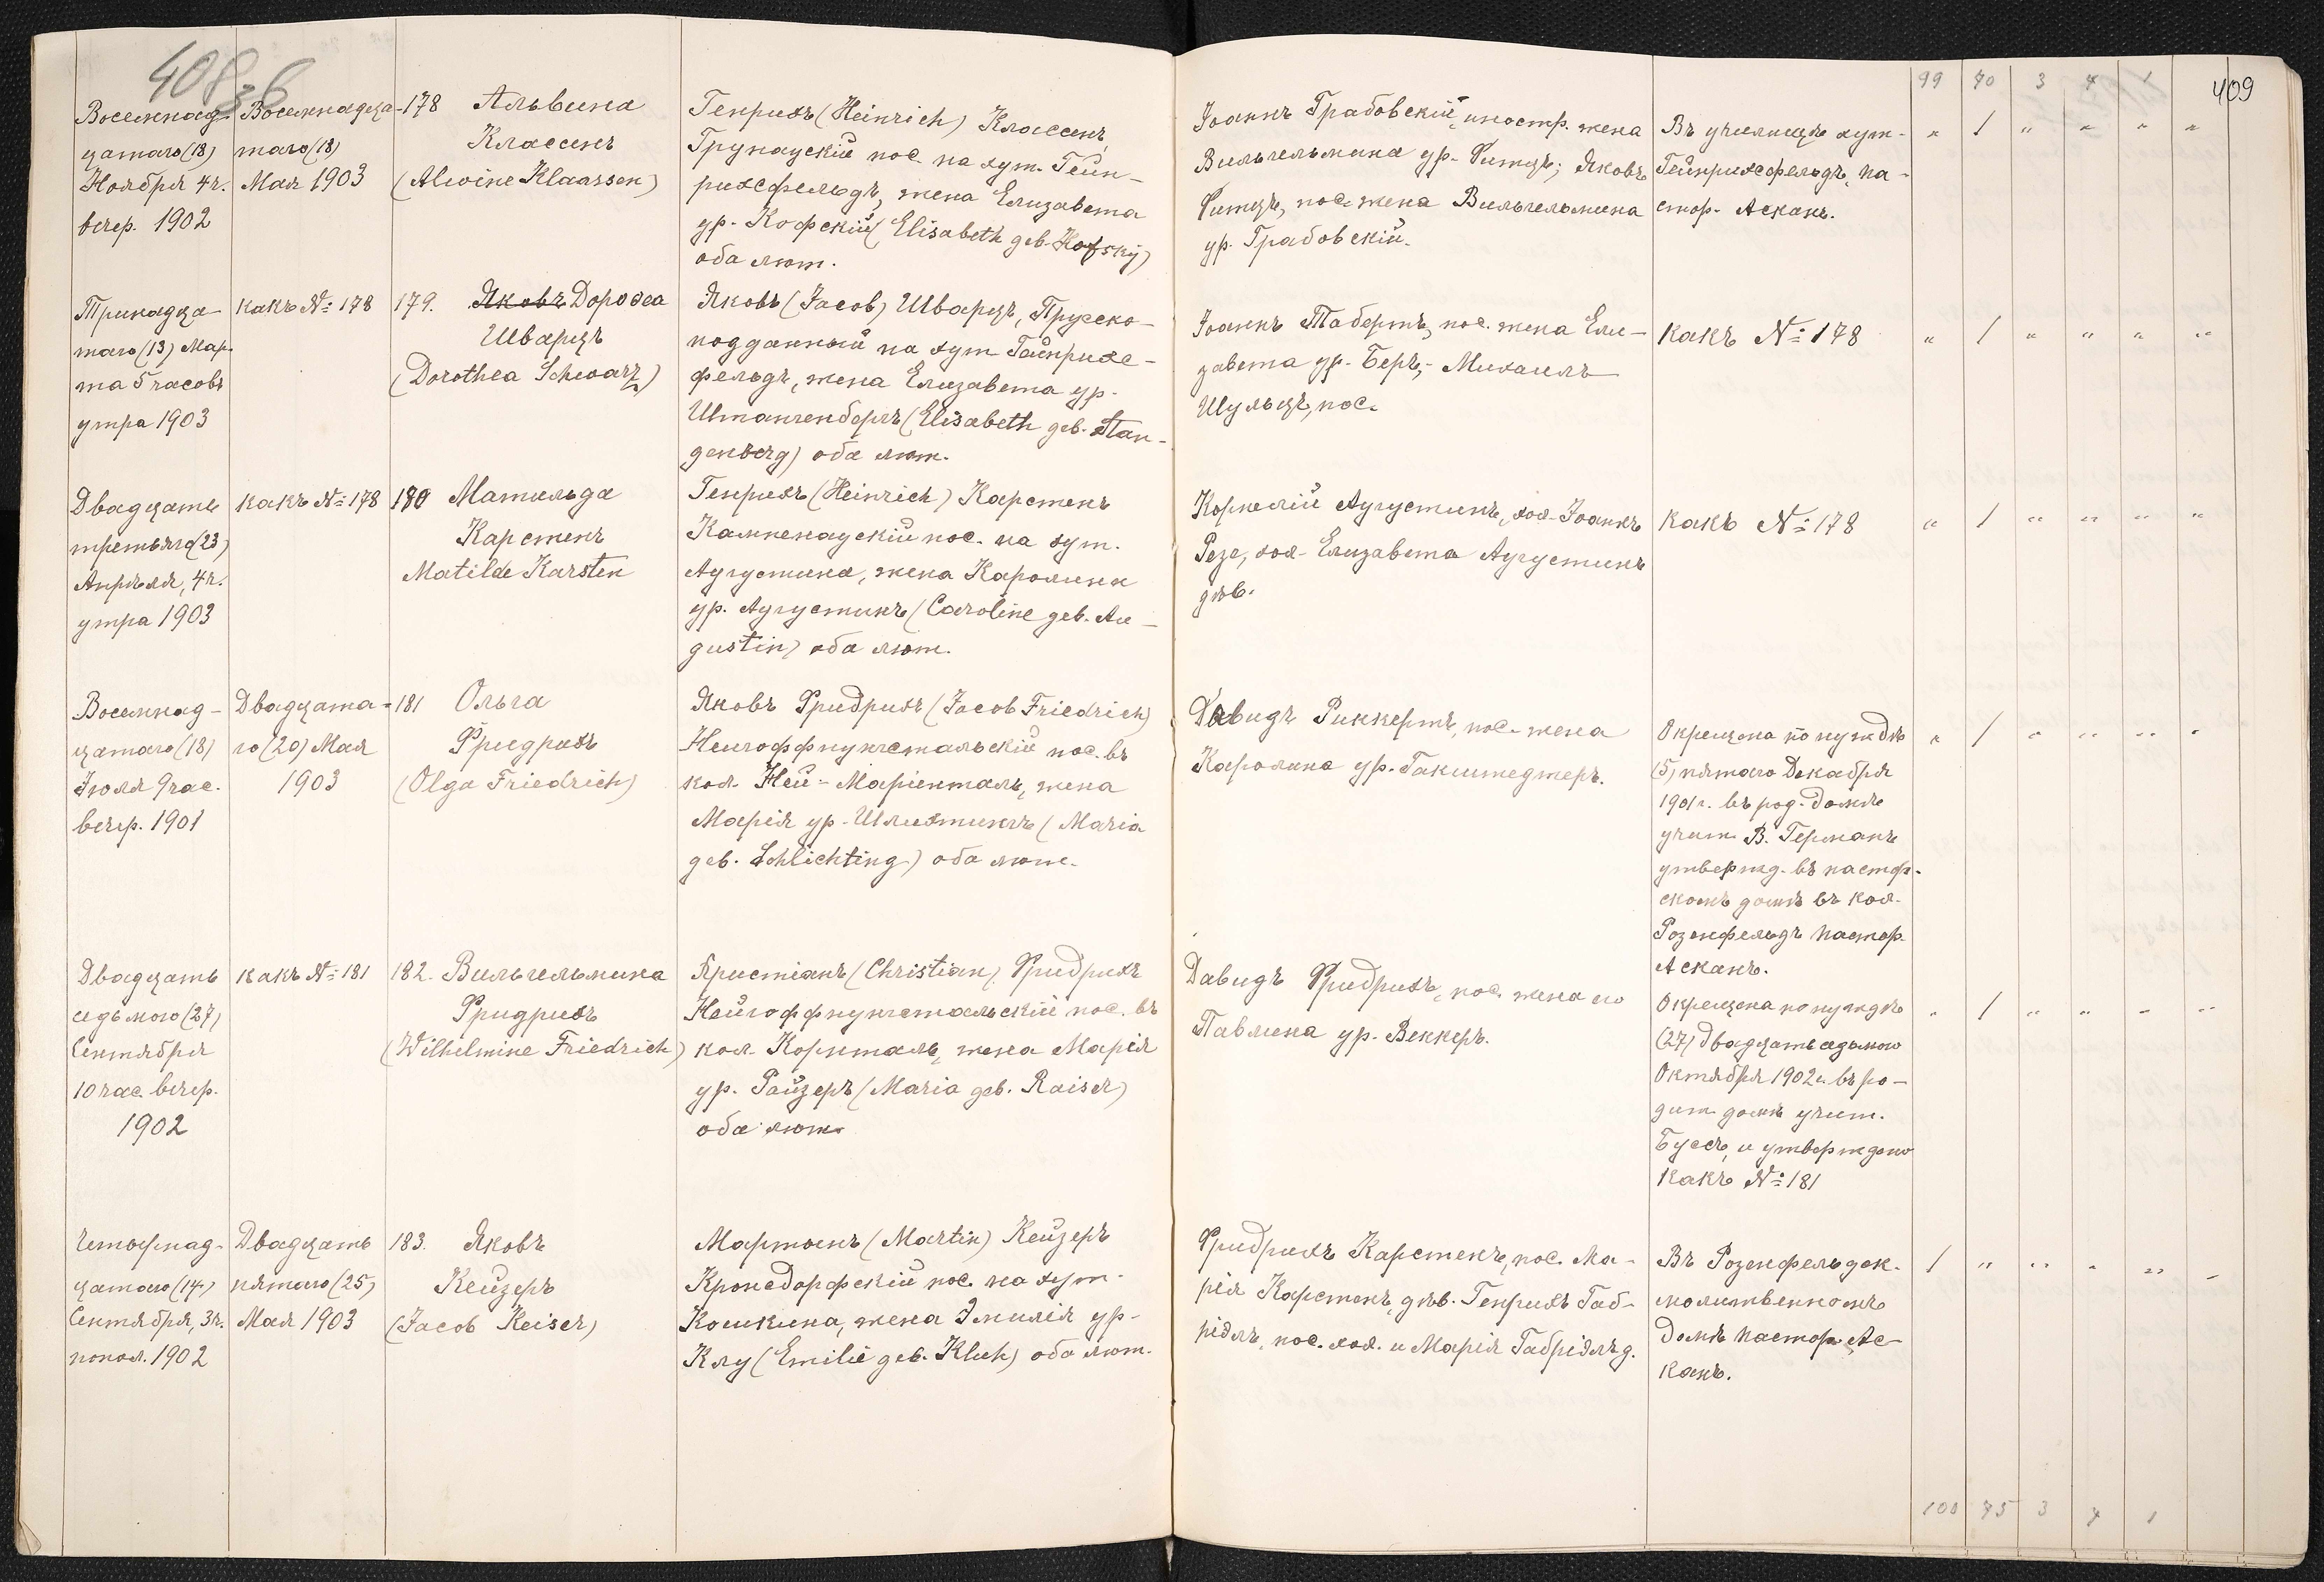 408 об
409
99 70 3 4 1
Восемнад-
цатаго (18)
Ноября 4 ч.
вечер. 1902
Восемнадца-
таго (18)
Мая 1903
178 Альвина
Классенъ
(Alwine Klaassen)
Генрихъ (Heinrich) Классенъ,
Грунаускій пос. на хут. Гейн-
рихсфельдъ, жена Елизавета
ур. Кофскій (Elisabeth geb. Kofsky)
оба лют.
Іоаннъ Грабовскій, иностр. жена
Вильгельмина ур. Фитцъ; Яковъ
Фитцъ, пос. жена Вильгельмина
ур. Грабовскій.
Въ училищѣ хут.
Гейнрихсфельдъ, па-
стор. Асканъ.
" 1 " " " "
Тринадца-
таго (13) Мар-
та 5 часовъ
утра 1903
какъ № 178
179. Яковъ Дороѳеа
Шварцъ
(Dorothea Schwarz)
Яковъ (Jacob) Шварцъ, Прусско-
подданный на хут. Гайнрихс-
фельдъ, жена Елизавета ур.
Штангенбергъ (Elisabeth geb. Stan-
genberg) оба лют.
Іоаннъ Табертъ, пос. жена Ели-
завета ур. Беръ; Михаилъ
Шульцъ, пос.
какъ № 178
" 1 " " " "
Двадцать
третьяго (23)
Апрѣля, 4 ч.
утра 1903
какъ № 178
180 Матильда
Карстенъ
Matilde Karsten
Генрихъ (Heinrich) Карстенъ
Кампенаускій пос. на хут.
Аугустина, жена Каролина
ур. Аугустинъ (Caroline geb. Au-
gustin) оба лют.
Корнелій Аугустинъ, хол. Іоаннъ
Резе, хол. Елизавета Аугустинъ
дѣв.
какъ № 178
" 1 " " " "
Восемнад-
цатаго (18)
Іюля 9 час.
вечер. 1901
Двадцата-
го (20) Мая
1903
181 Ольга
Фридрихъ
(Olga Friedrich)
Яковъ Фридрихъ (Jacob Friedrich)
Нейгоффнунгстальскій пос. въ
кол. Ней-Маріенталь, жена
Марія ур. Шлихтингъ (Maria
geb. Schlichting) оба лют.
Давидъ Риккертъ, пос. жена
Каролина ур. Гакштедтеръ.
Окрещена по нуждѣ
(5) пятаго Декабря
1901 г. въ род. домѣ
учит. В. Германъ
утвержд. въ пастор-
скомъ домѣ въ кол.
Розенфельдъ пастор.
Асканъ.
" 1 " " " "
Двадцать
седьмого (27)
Сентября
10 час. вечер.
1902
какъ № 181
182. Вильгельмина
Фридрихъ
(Wilhelmine Friedrich)
Христіанъ (Christian) Фридрихъ
Нейгоффнунгстальскій пос. въ
кол. Корнталь, жена Марія
ур. Райзеръ (Maria geb. Raiser)
оба лют.
Давидъ Фридрихъ, пос. жена его
Павлина ур. Веккеръ.
Окрещена по нуждѣ
(27) двадцать седьмого
Октября 1902 г. въ ро-
дит. домѣ учит.
Буссъ, и утверждено
какъ № 181
" 1 " " " "
Четырнад-
цатаго (14)
Сентября, 3 ч.
попол. 1902
Двадцать
пятаго (25)
Мая 1903
183. Яковъ
Кейзеръ
(Jacob Keiser)
Мартынъ (Martin) Кейзеръ
Кронсдорфскій пос. на хут.
Кошкина, жена Эмилія ур.
Клу (Emilie geb. Kluh) оба лют.
Фридрихъ Карстенъ, пос. Ма-
рія Карстенъ, дѣв. Генрихъ Габ-
ріэлъ, пос. хол. и Марія Габріэлъ д.
Въ Розенфельдск.
молитвенномъ
домѣ пастор. Ас-
канъ.
1 " " " " "
100 75 3 4 1